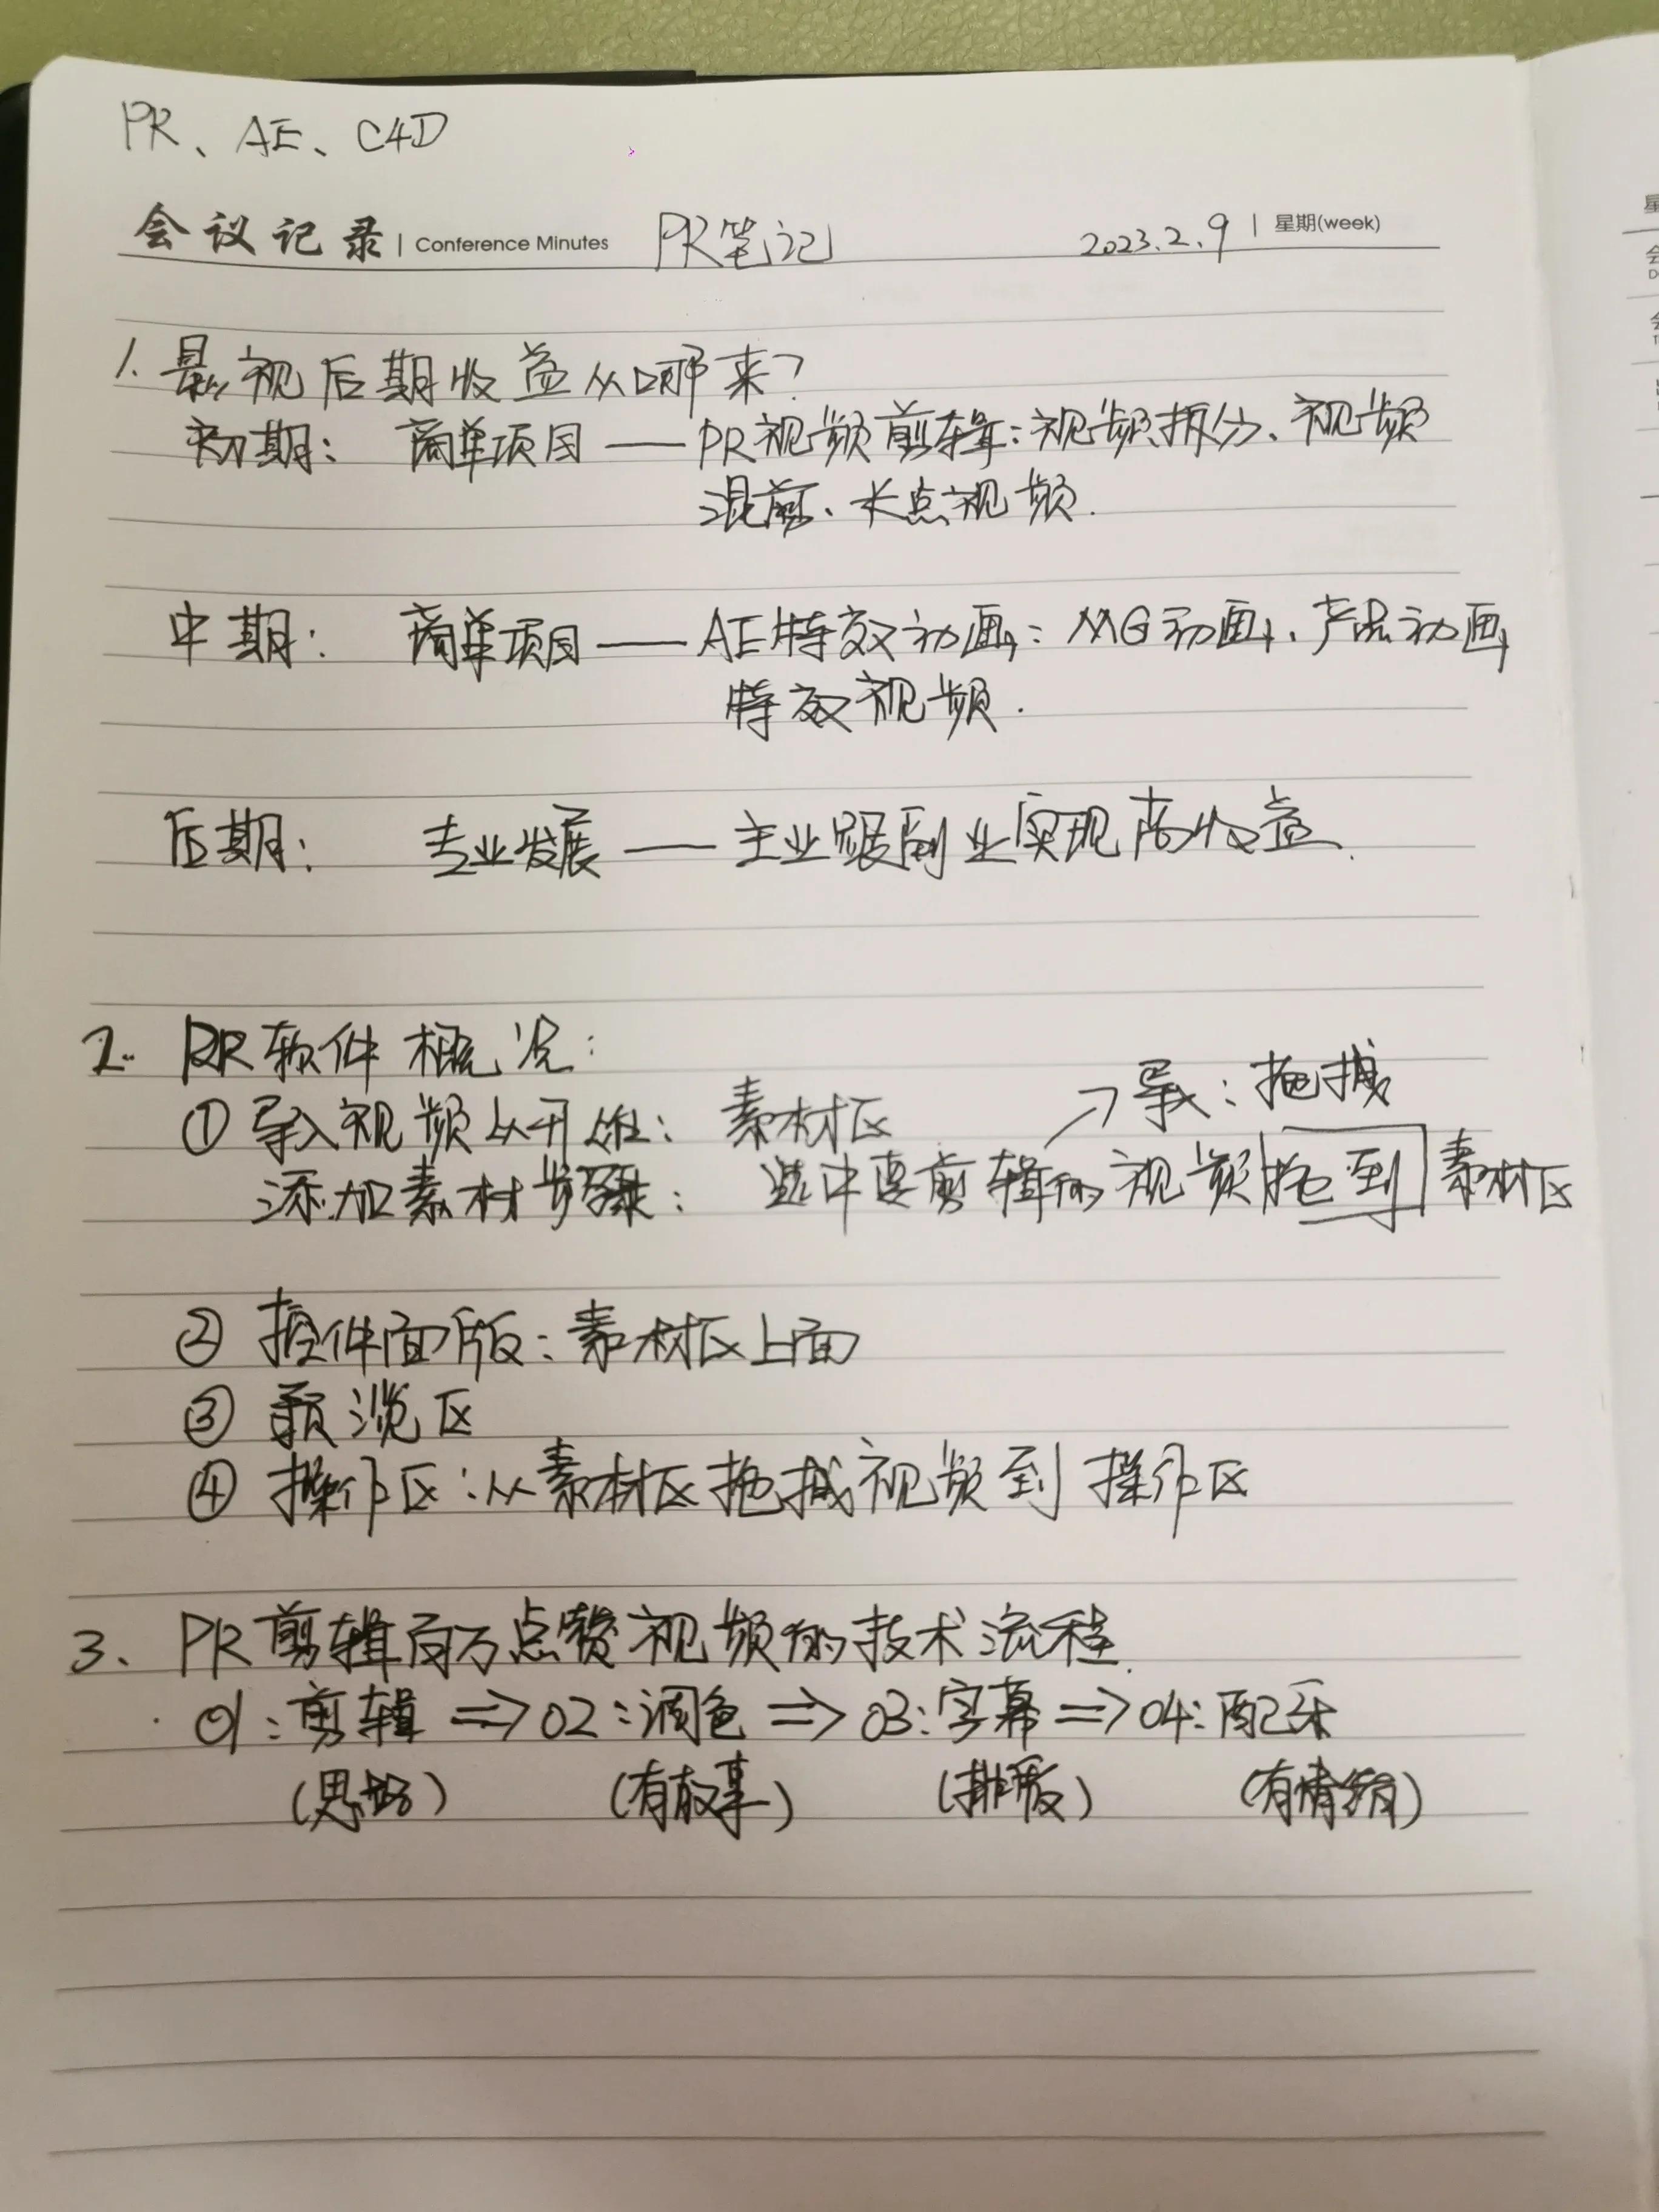 PR、AE、C4D
会议记录 | Conference Minutes PR笔记 2023.2.9 | 星期(week)
1. 影视后期收益从哪来?
初期: 商单项目——PR视频剪辑:视频拆分、视频
混剪、卡点视频.
中期: 商单项目——AE特效动画:MG动画、产品动画
特效视频.
后期: 专业发展——主业跟副业实现高收益.
2. PR软件概况:
→导入:拖拽
①导入视频从开始: 素材区
添加素材步骤: 选中要剪辑的视频拖到素材区
②控件面版:素材区上面
③预览区
④操作区:从素材区拖拽视频到操作区
3、PR剪辑百万点赞视频的技术流程.
01:剪辑 => 02:调色 => 03:字幕 => 04:配乐
(思路) (有故事) (排版) (有情绪)